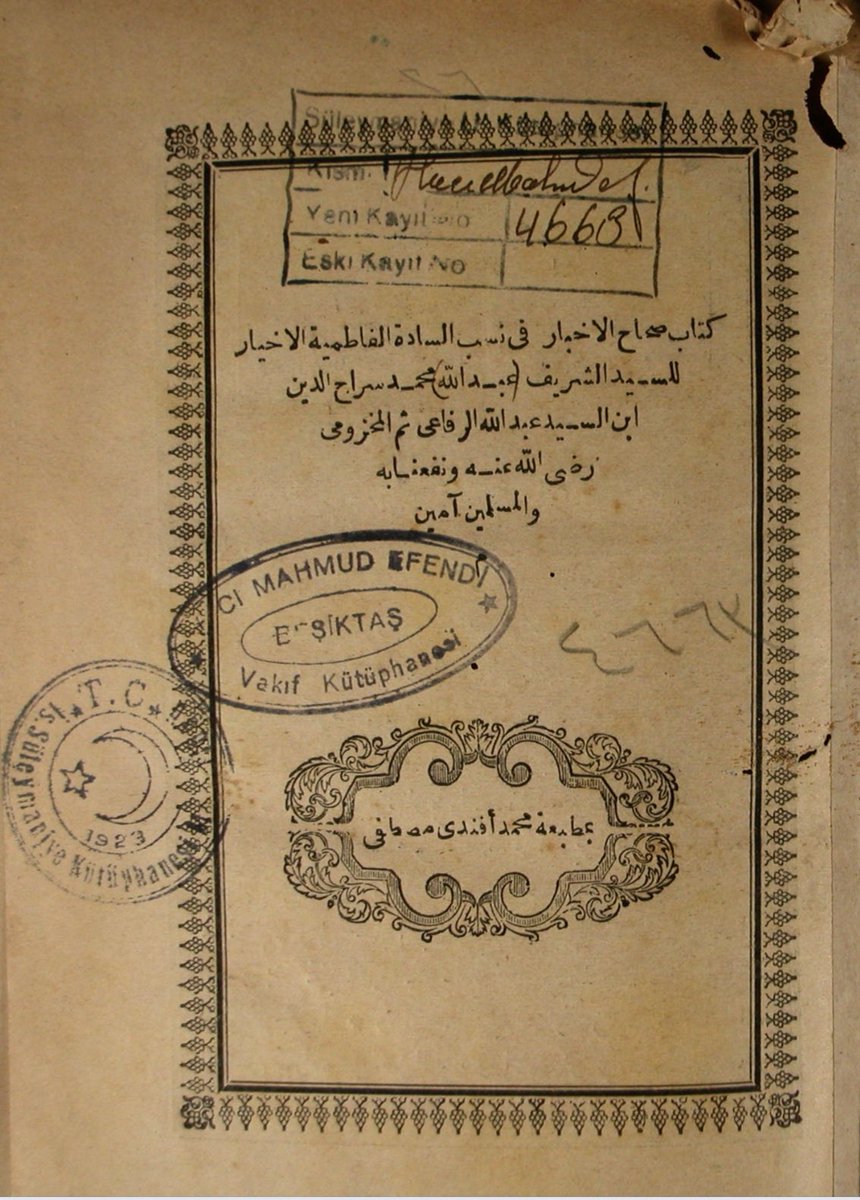 Süleymaniye Kütüphanesi
Kısmı
Yeni Kayıt No 4663
Eski Kayıt No
كتاب صحاح الاخبار فى نسب السادة الفاطمية الاخيار
للسيد الشريف (عبد الله) محمد سراج الدين
ابن السيد عبد الله الرفاعى ثم المخزومى
رضى الله عنه ونفعنا به
والمسلمين آمين
CI MAHMUD EFENDİ
BEŞİKTAŞ
Vakıf Kütüphanesi
٤٦٦٣
T.C.
İs. Süleymaniye Kütüphanesi
1923
بمطبعة محمد أفندى مصطفى